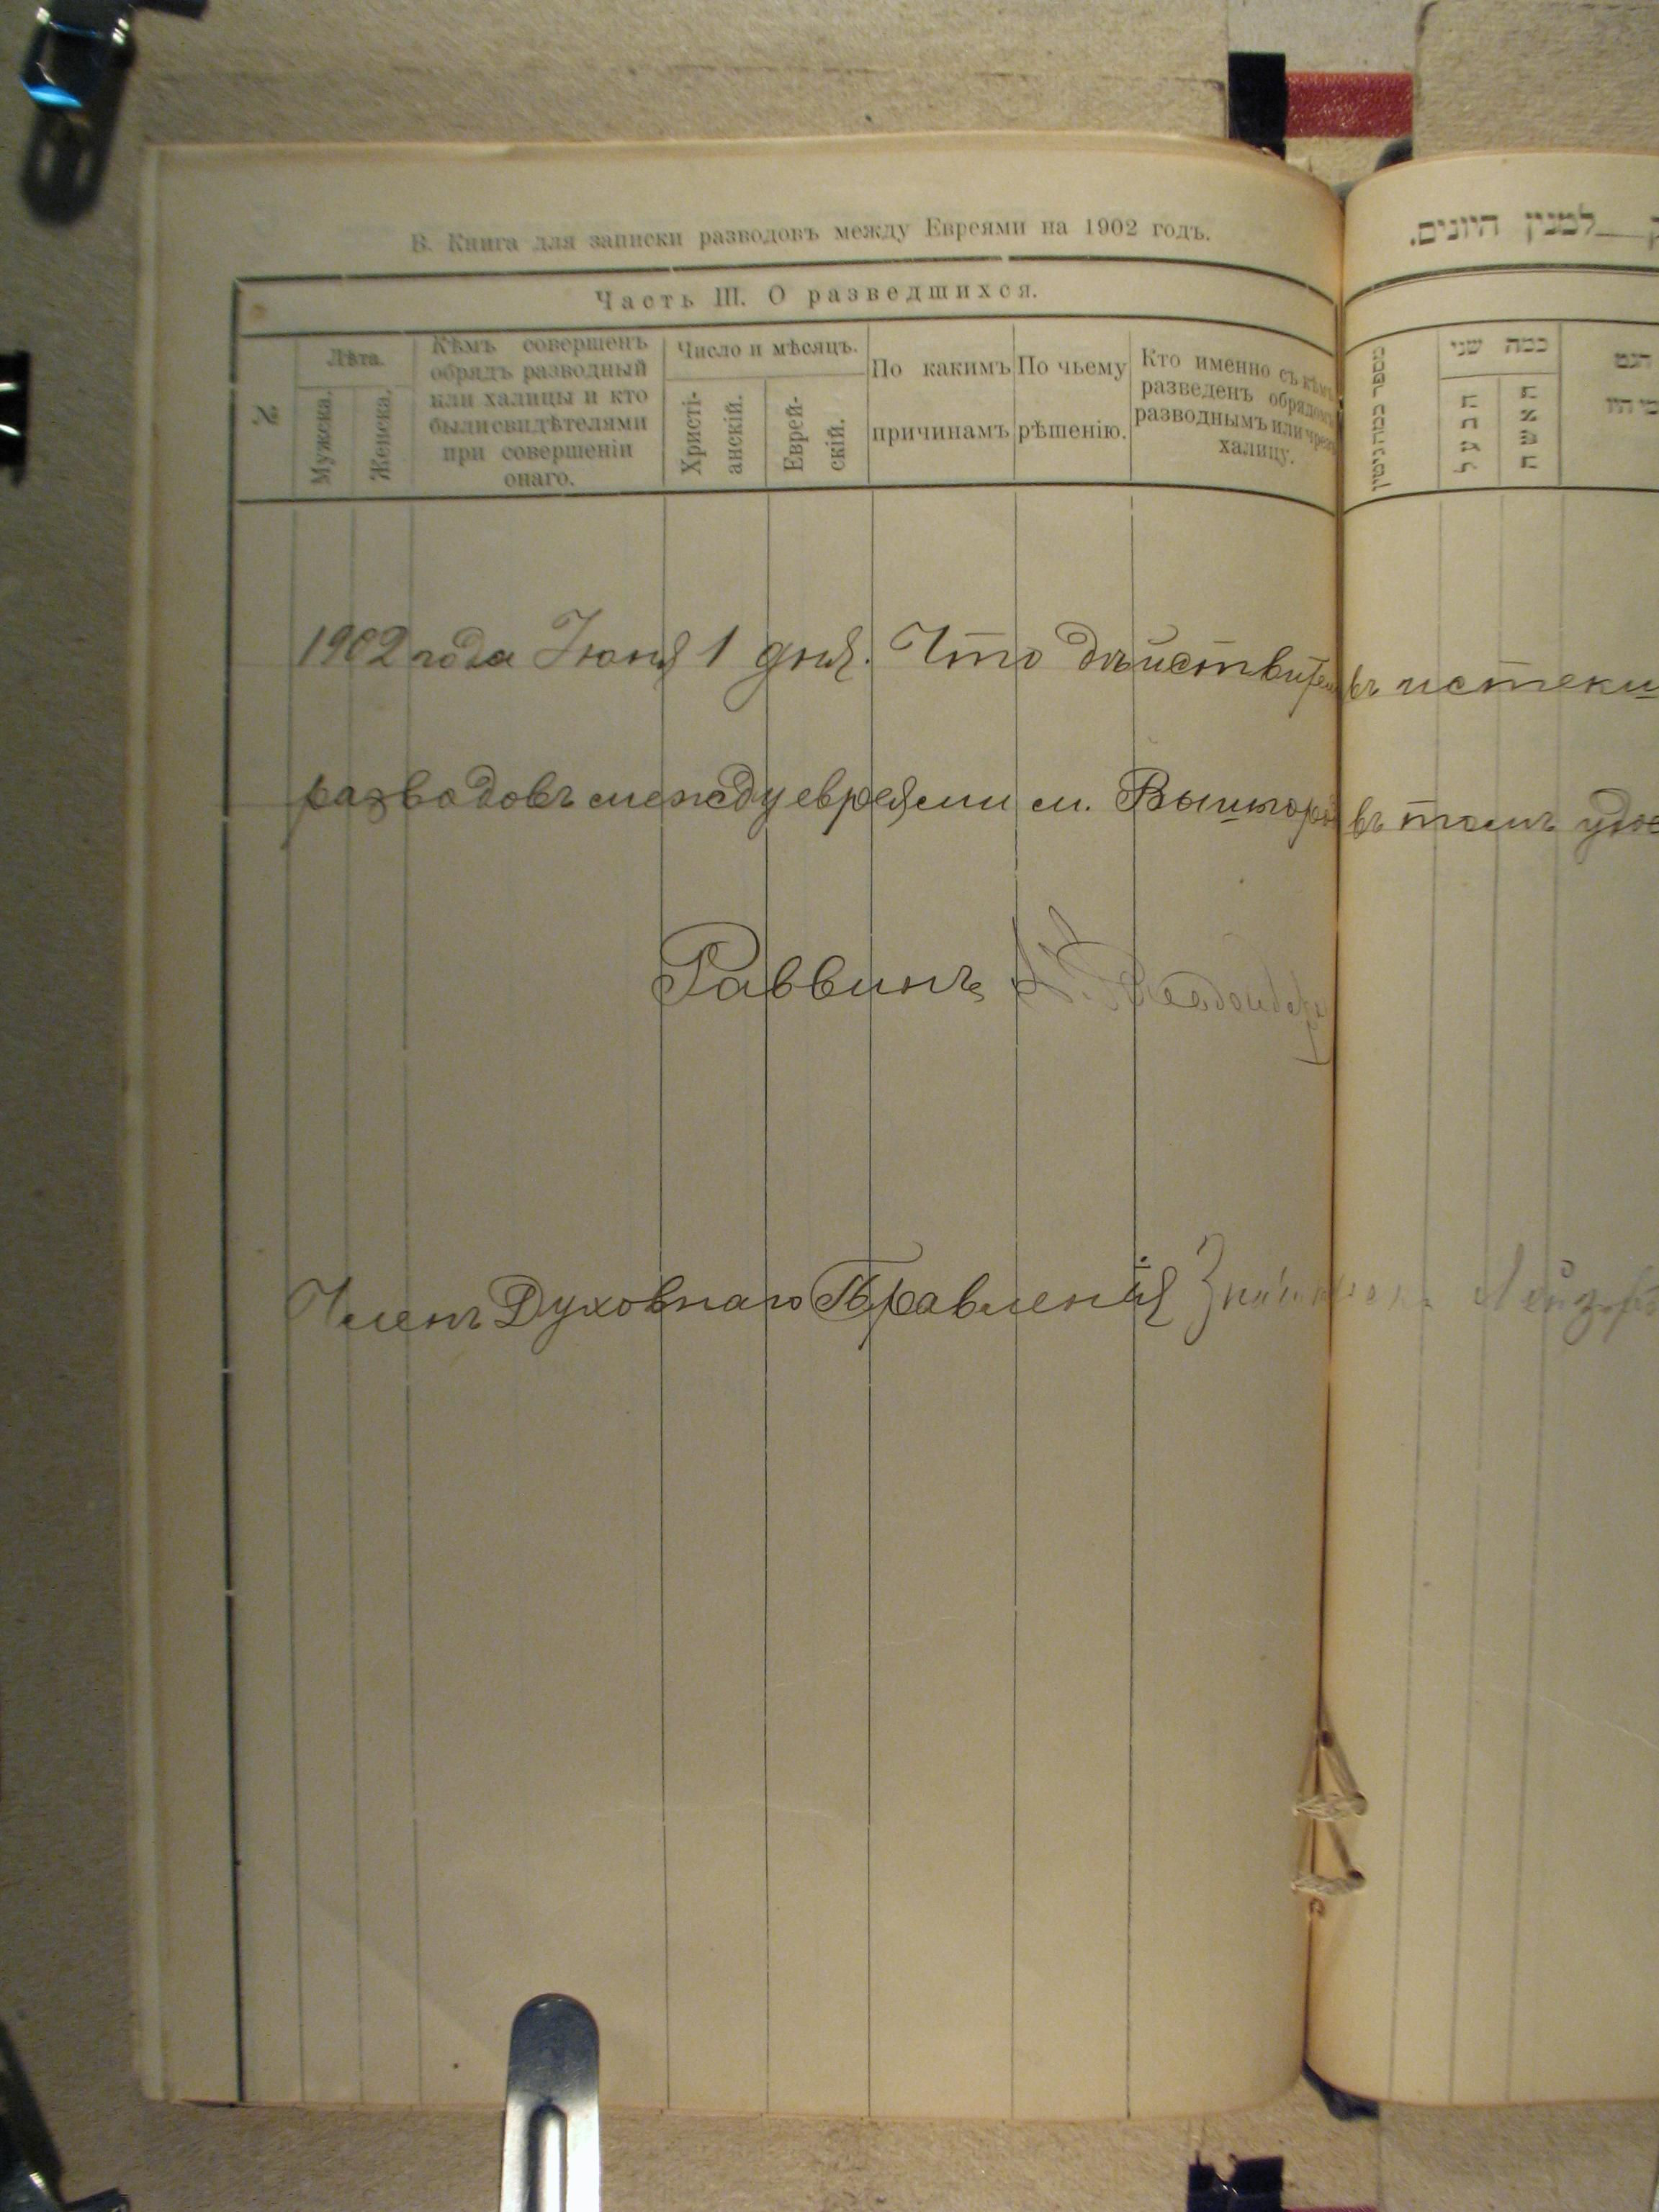 В. Книга для записки разводовъ между Евреями на 1902 годъ.
למנין היונים.
Часть III. О разведшихся.
№
Лѣта.
Мужеска.
Женска.
Кѣмъ совершенъ
обрядъ разводный
или халицы и кто
были свидѣтелями
при совершеніи
онаго.
Число и мѣсяцъ.
Христі-
анскій.
Еврей-
скій.
По какимъ
причинамъ
По чьему
рѣшенію.
Кто именно съ кѣмъ
разведенъ обрядомъ
разводнымъ или чрезъ
халицу.
ככה שני
הבעל
האשה
1902 года Іюня 1 дня. Что дѣйствител въ истекш
разводовъ между евреями м. Вышгоро въ томъ удос
Раввинъ
Членъ Духовнаго Правленія